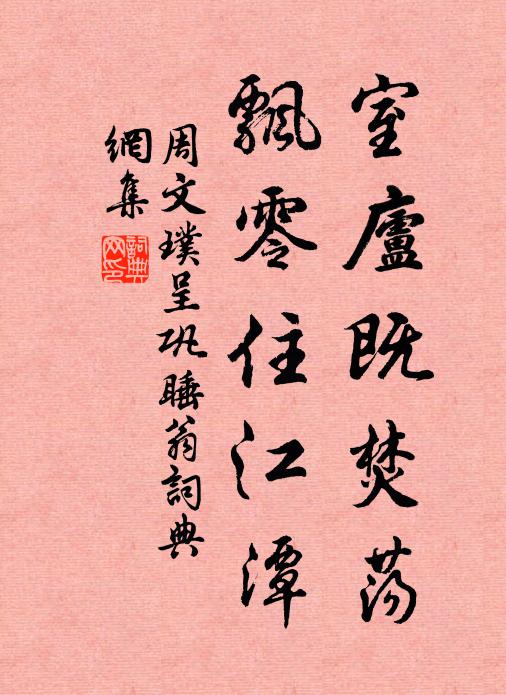 室廬既焚蕩
飄零住江潭
周文璞呈巩睡翁詞典
網集
詞典
网印